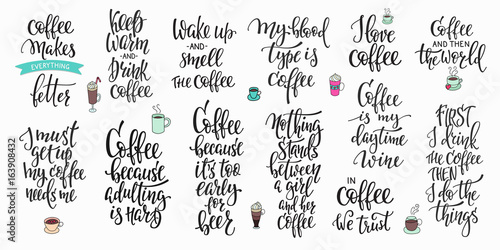 Coffee
makes
EVERYTHING
better
Keep
warm
AND
Drink
coffee
Wake up
AND
smell
THE COFFEE
My blood
type is
coffee
I love
coffee
Coffee
AND THEN
the world
I must
get up
my coffee
needs me
Coffee
because
adulting
is hard
Coffee
because
it's too
early
for
beer
Nothing
stands
between
a girl
and her
coffee
Coffee
is my
daytime
wine
IN
coffee
we trust
FIRST
I drink
the coffee
THEN
I do the
things
163908432